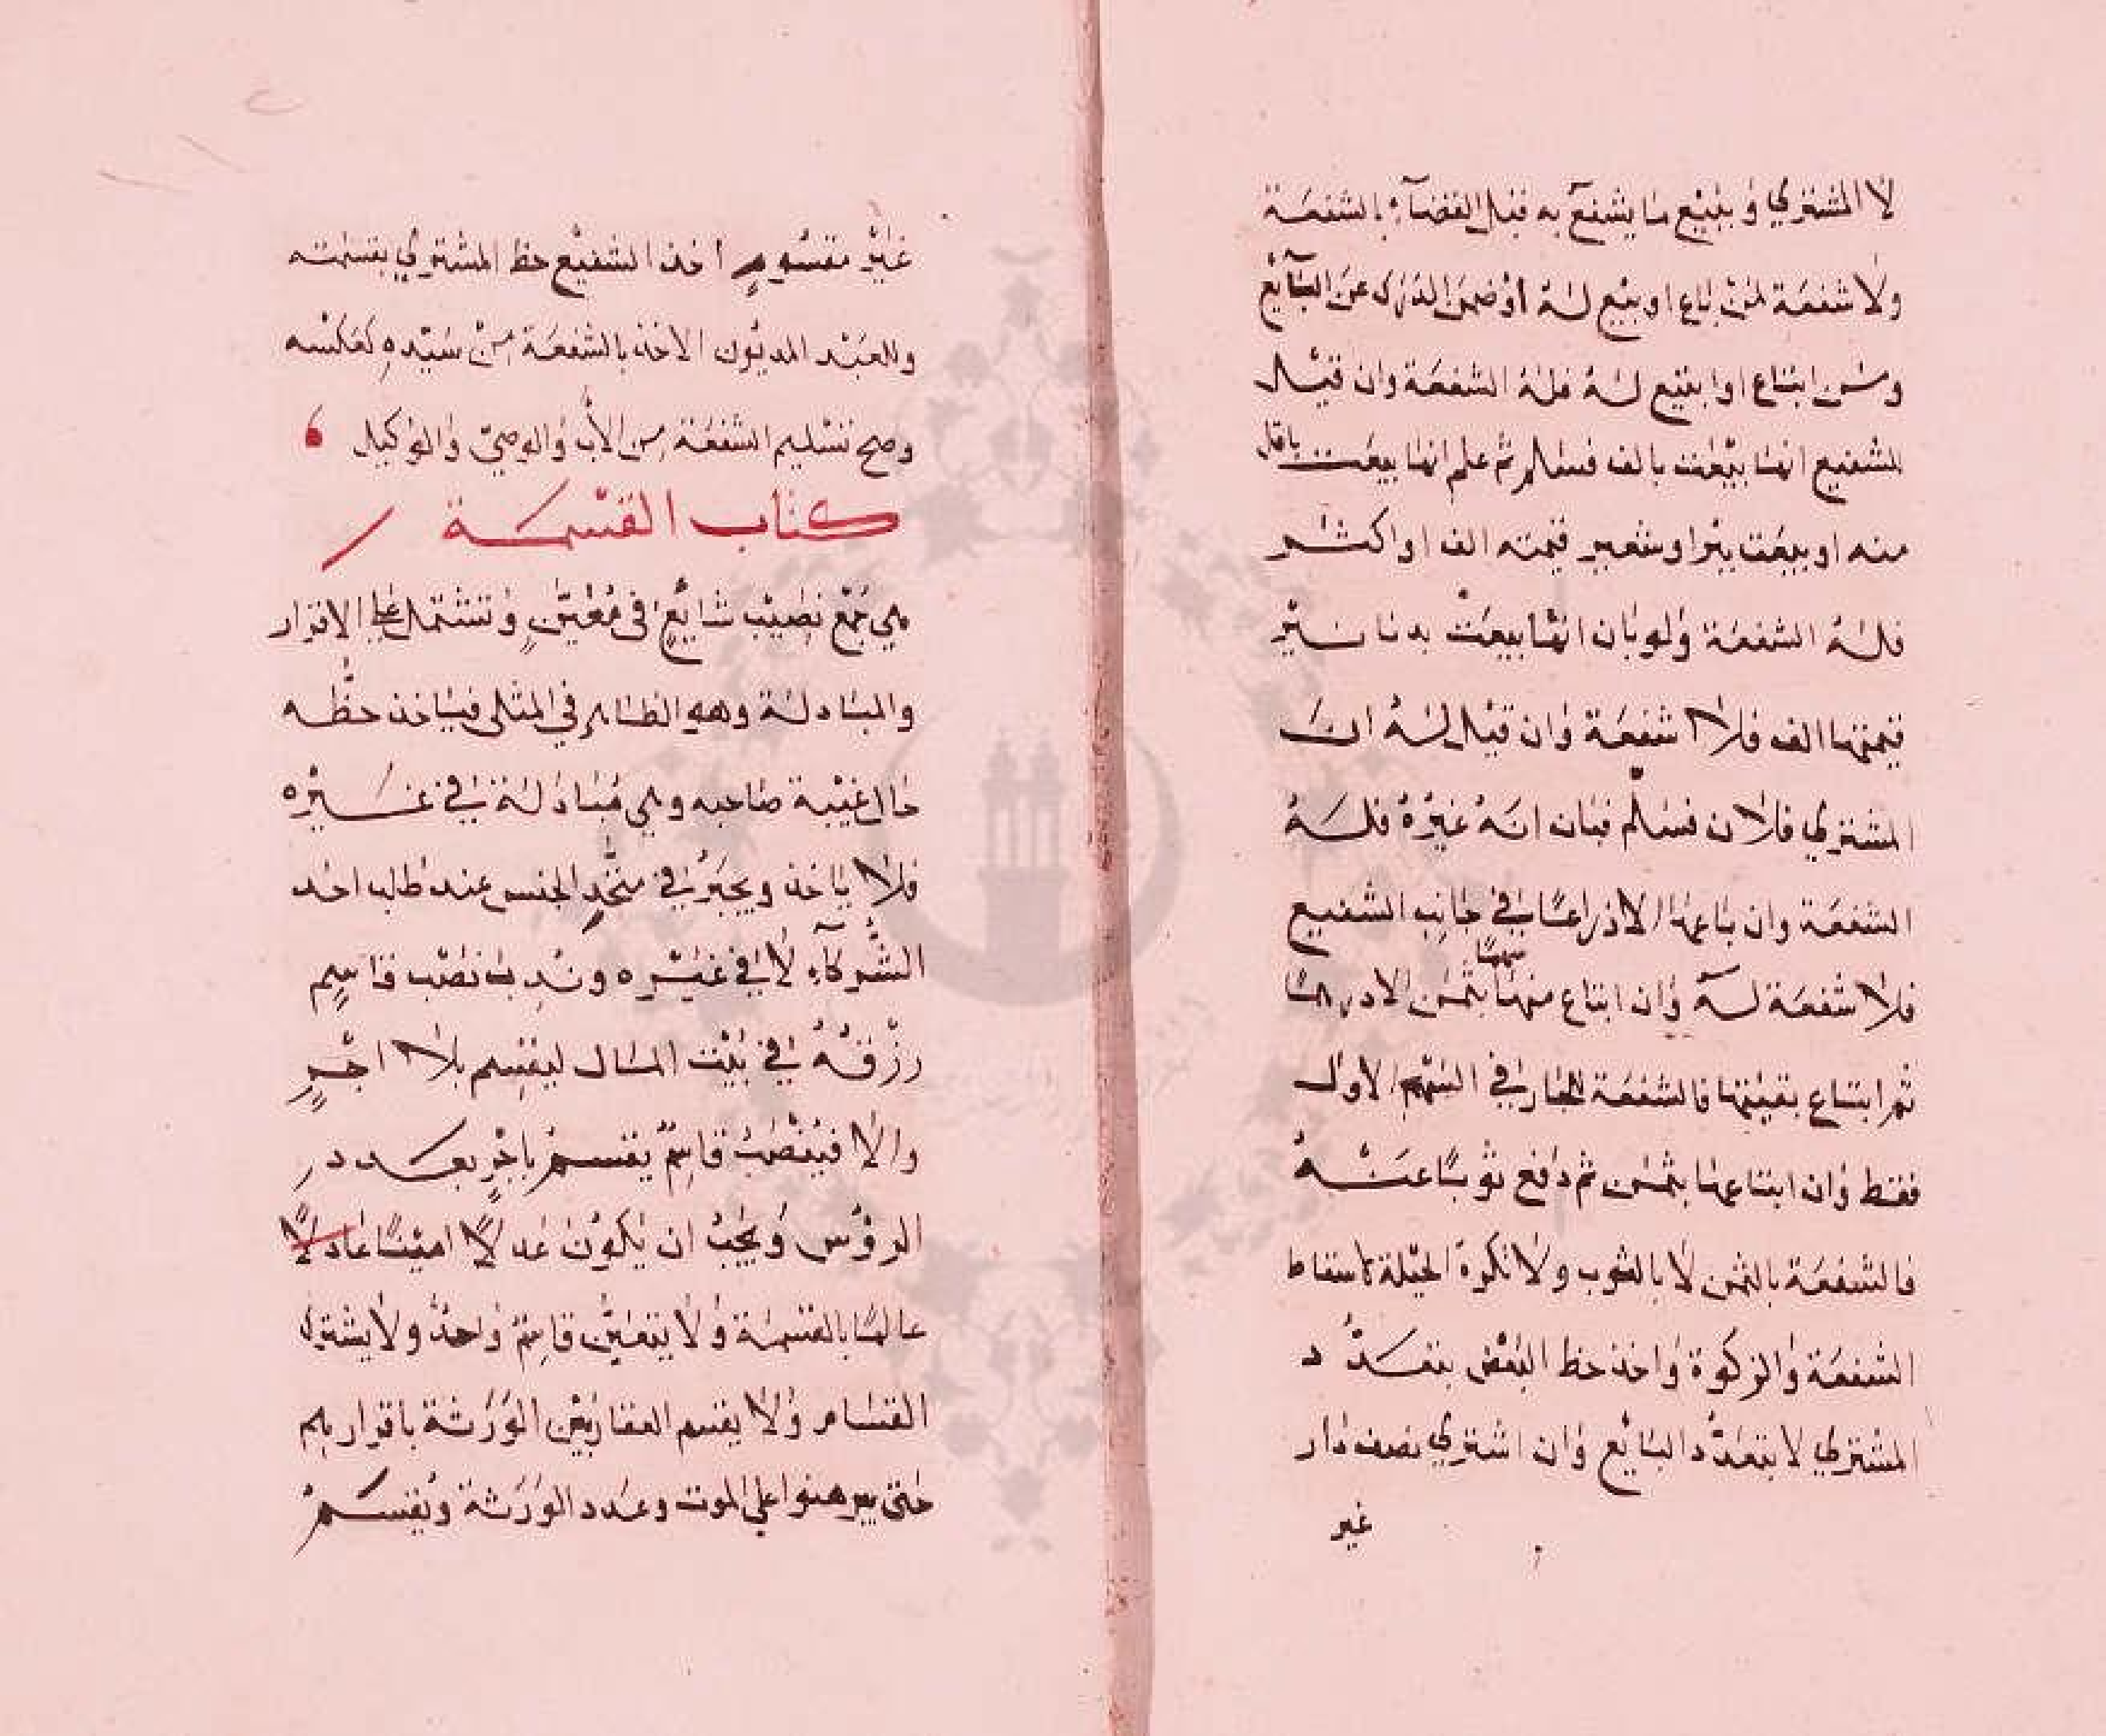 لا المشتري وببيع ما يشفع به قبل القضآء بالشفعة
ولا شفعة لمن باع او بيع له أو ضمن الدرك عن البآئع
ومن ابتاع او ابتيع له فله الشفعة وان قيل
للشفيع انها بيعت بالف فسلم ثم علم انها بيعت باقل
منه او بيعت ببر او شعير قيمته الف او اكثر
فله الشفعة ولو بان انها بيعت بدنانير
قيمتها الف فلا شفعة وان قيل له ان
المشتري فلان فسلم فبان انه غيره فله
الشفعة وان باعها الا ذراعا في جانب الشفيع
فلا شفعة له وان ابتاع منها سهما بثمن الا درهما
ثم ابتاع بقيتها فالشفعة للجار في السهم الاول
فقط وان ابتاعها بثمن ثم دفع ثوبا عنه
فالشفعة بالثمن لا بالثوب ولا تكره الحيلة لاسقاط
الشفعة والزكوة واخذ حظ البعض بتعدد
المشتري لا بتعدد البائع وان اشتري نصف دار
غير
غير مقسوم أخذ الشفيع حظ المشتري بقسمته
وللعبد المديون الاخذ بالشفعة من سيده كعكسه
وصح تسليم الشفعة من الأب والوصي والوكيل
كتاب القسمة
هي جمع نصيب شايع في معين وتشتمل على الاقرار
والمبادلة وهو الظاهر في المثلى فياخذ حظه
حال غيبة صاحبه وهي مبادلة في غيره
فلا ياخذ ويجبر في متحد الجنس عند طلب احد
الشركآء لا في غيره وندب نصب قاسم
رزقه في بيت المال ليقسم بلا اجر
والا فينصب قاسم يقسم باجر بعدد
الرؤس ويجب ان يكون عدلا امينا عادلا
عالما بالقسمة ولا يتعين قاسم واحد ولا يشترك
القسام ولا يقسم العقار بين الورثة باقرارهم
حتى يبرهنوا علي الموت وعدد الورثة ويقسم